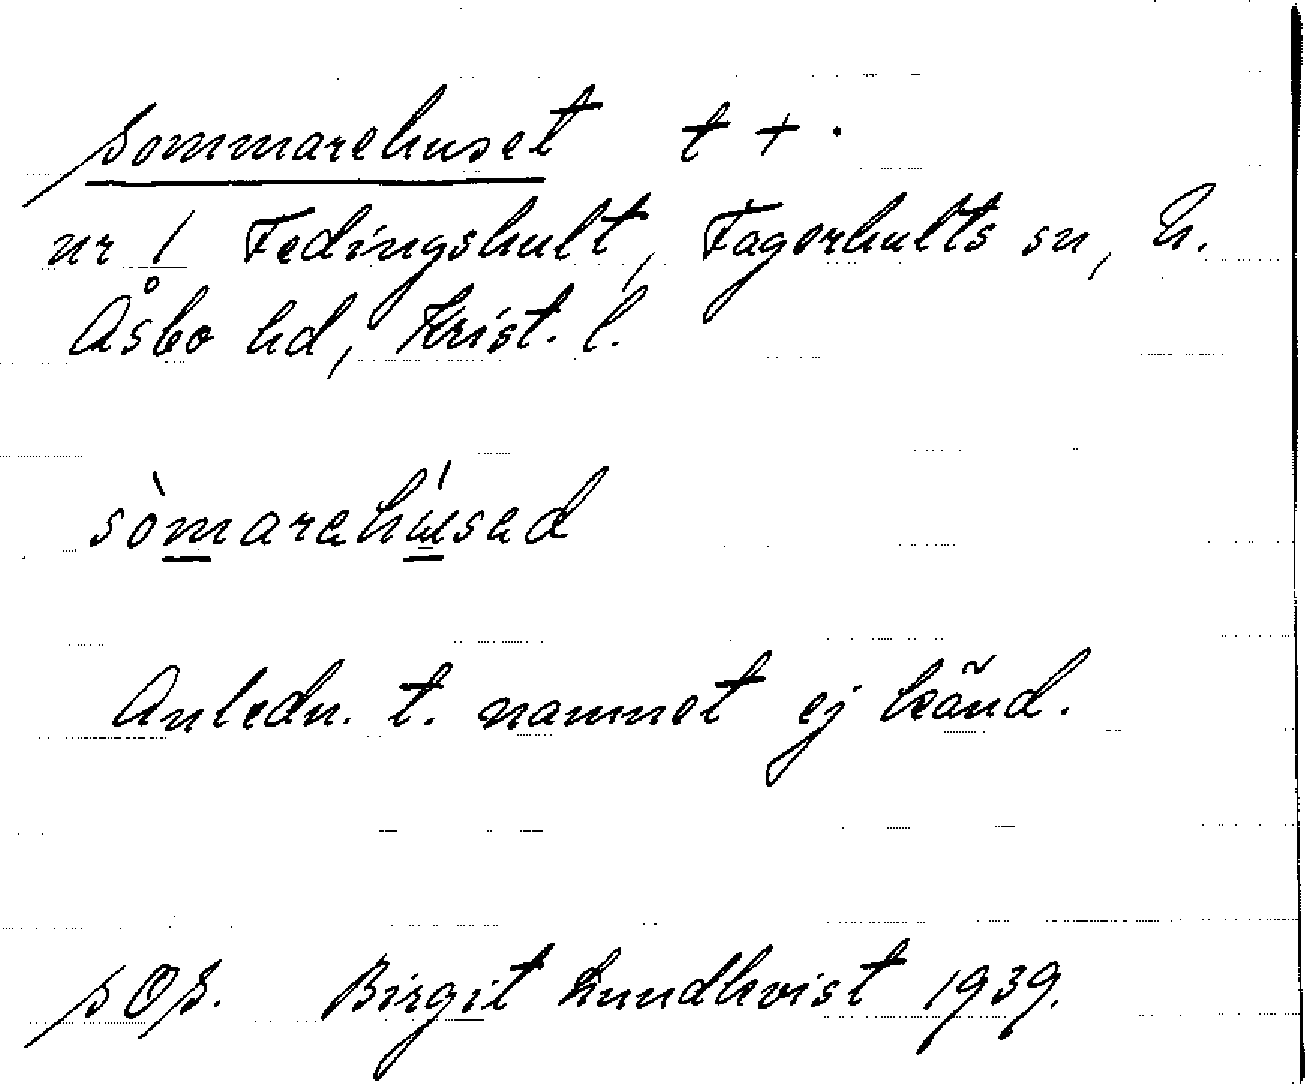 Sommarehuset t +.
nr 1 Fedingshult, Fagerhults sn, N.
Åsbo hd, Krist. l.
sòmarehúsed
Anledn. t. namnet ej känd.
Birgit Lundkvist 1939.